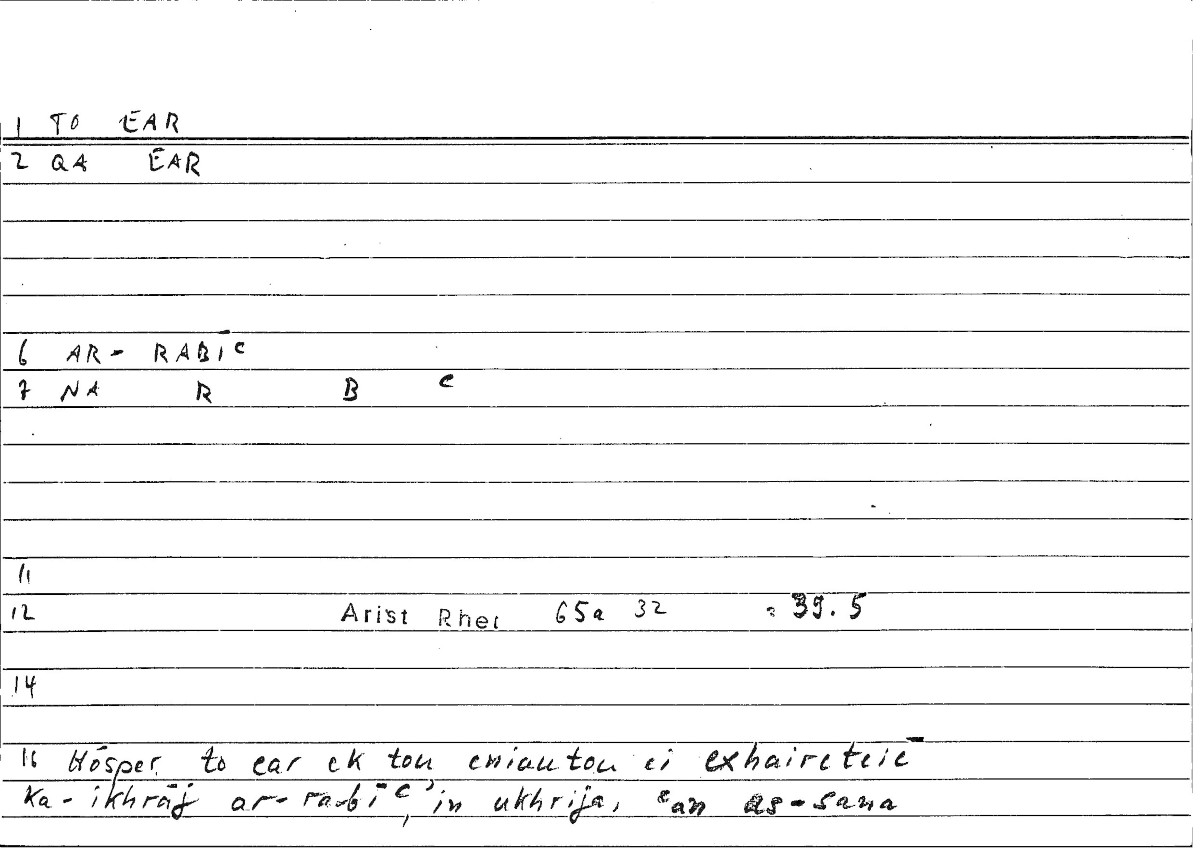 1 TO EAR
2 QA EAR
6 AR- RABĪc
7 NA R B c
11
12 Arist Rhet 65a 32 = 39.5
14
16 Hōsper to ear ek tou eniautou ei exhairetheiē
Ka-ikhrāj ar-rabīc, in ukhrija, can as-sana